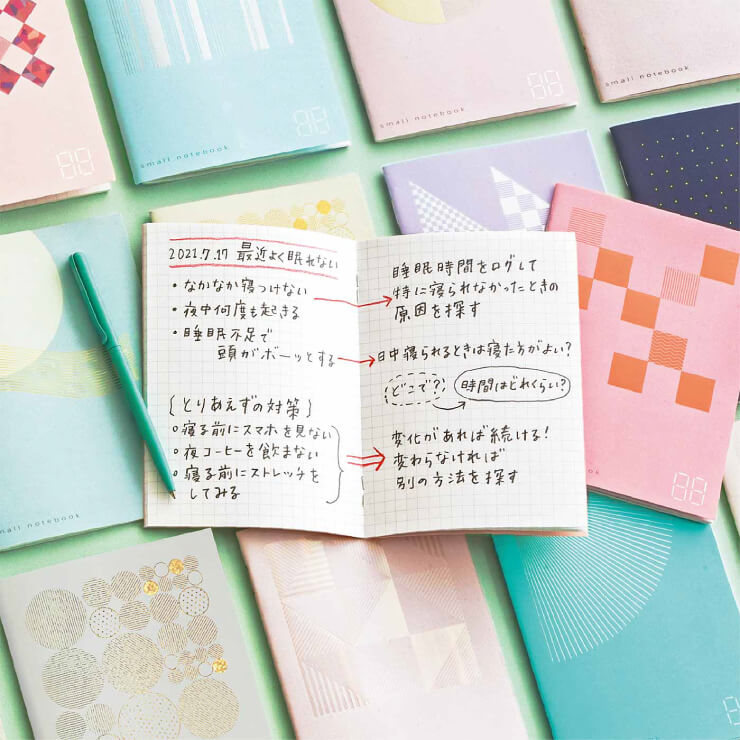 small notebook
88
small notebook
88
small notebook
88
88
2021.7.17 最近よく眠れない
・なかなか寝つけない
・夜中何度も起きる
・睡眠不足で
頭がボーッとする
{とりあえずの対策}
○寝る前にスマホを見ない
○夜コーヒーを飲まない
○寝る前にストレッチを
してみる
睡眠時間をログして
特に寝られなかったときの
原因を探す
日中寝られるときは寝た方がよい?
どこで?
時間はどれくらい?
変化があれば続ける!
変わらなければ
別の方法を探す
small notebook
notebook
88